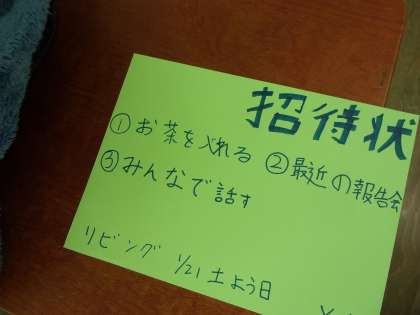 招待状
①お茶を入れる ②最近の報告会
③みんなで話す
リビング 1/21 土よう日